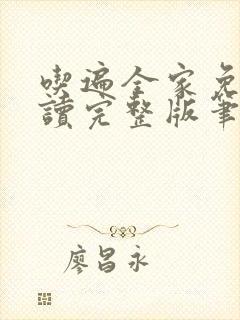 喫遍全家免
讀完整版筆
廖昌永